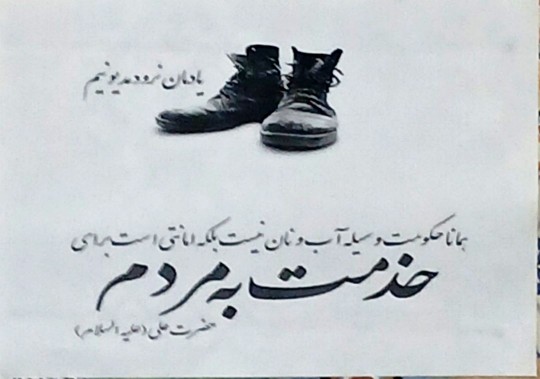 یادمان نرود مدیونیم
همانا حکومت وسیله آب و نان نیست بلکه امانتی است برای
خدمت به مردم
حضرت علی (علیه السلام)